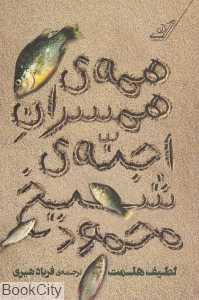 همه‌ی
همسران
اجنّه‌ی
شیخ
محمود
لطیف هلمت ترجمه‌ی فریاد شیری
BookCity